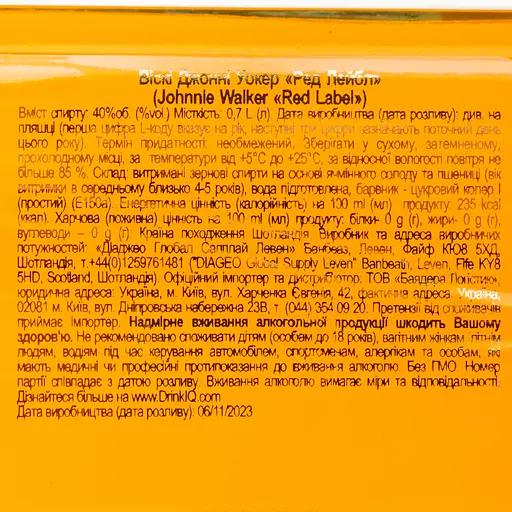 Віскі Джонні Уокер «Ред Лейбл»
(Johnnie Walker «Red Label»)
Вміст спирту: 40%об. (%vol) Місткість: 0,7 L (л) Дата виробництва (дата розливу): див. на
пляшці (перша цифра L-коду вказує на рік, наступні три цифри зазначають поточний день
цього року). Термін придатності: необмежений. Зберігати у сухому, затемненому,
прохолодному місці, за температури від +5°С до +25°С, за відносної вологості повітря не
більше 85 %. Склад: витримані зернові спирти на основі ячмінного солоду та пшениці (вік
витримки в середньому близько 4-5 років), вода підготовлена, барвник - цукровий колер I
(простий) (Е150а). Енергетична цінність (калорійність) на 100 ml (мл) продукту: 235 kcal
(ккал). Харчова (поживна) цінність на 100 ml (мл) продукту: білки- 0 g (г), жири- 0 g (г),
вуглеводи – 0 g (г). Країна походження Шотландія Виробник та адреса виробничих
потужностей: «Діаджео Глобал Сапплай Левен» Банбеаз, Левен, Файф КЮ8 5ХД,
Шотландія, т.+44(0)1259761481 ("DIAGEO Global Supply Leven" Banbeath, Leven, Fife KY8
5HD, Scotland, Шотландія). Офіційний імпортер та дистриб'ютор: ТОВ «Баядера Логістик»,
юридична адреса: Україна, м. Київ, вул. Харченка Євгенія, 42, фактична адреса: Україна,
02081 м. Київ, вул. Дніпровська набережна 23В, т (044) 354 09 20. Претензії від споживачів
приймає Імпортер. Надмірне вживання алкогольної продукції шкодить Вашому
здоров'ю. Не рекомендовано споживати дітям (особам до 18 років), вагітним жінкам, літнім
людям, водіям під час керування автомобілем, спортсменам, алергікам та особам, які
мають медичні чи професійні протипоказання до вживання алкоголю. Без ГМО. Номер
партії співпадає з датою розливу. Вживання алкоголю вимагає міри та відповідальності.
Дізнайтеся більше на www.DrinkIQ.com
Дата виробництва (дата розливу): 06/11/2023